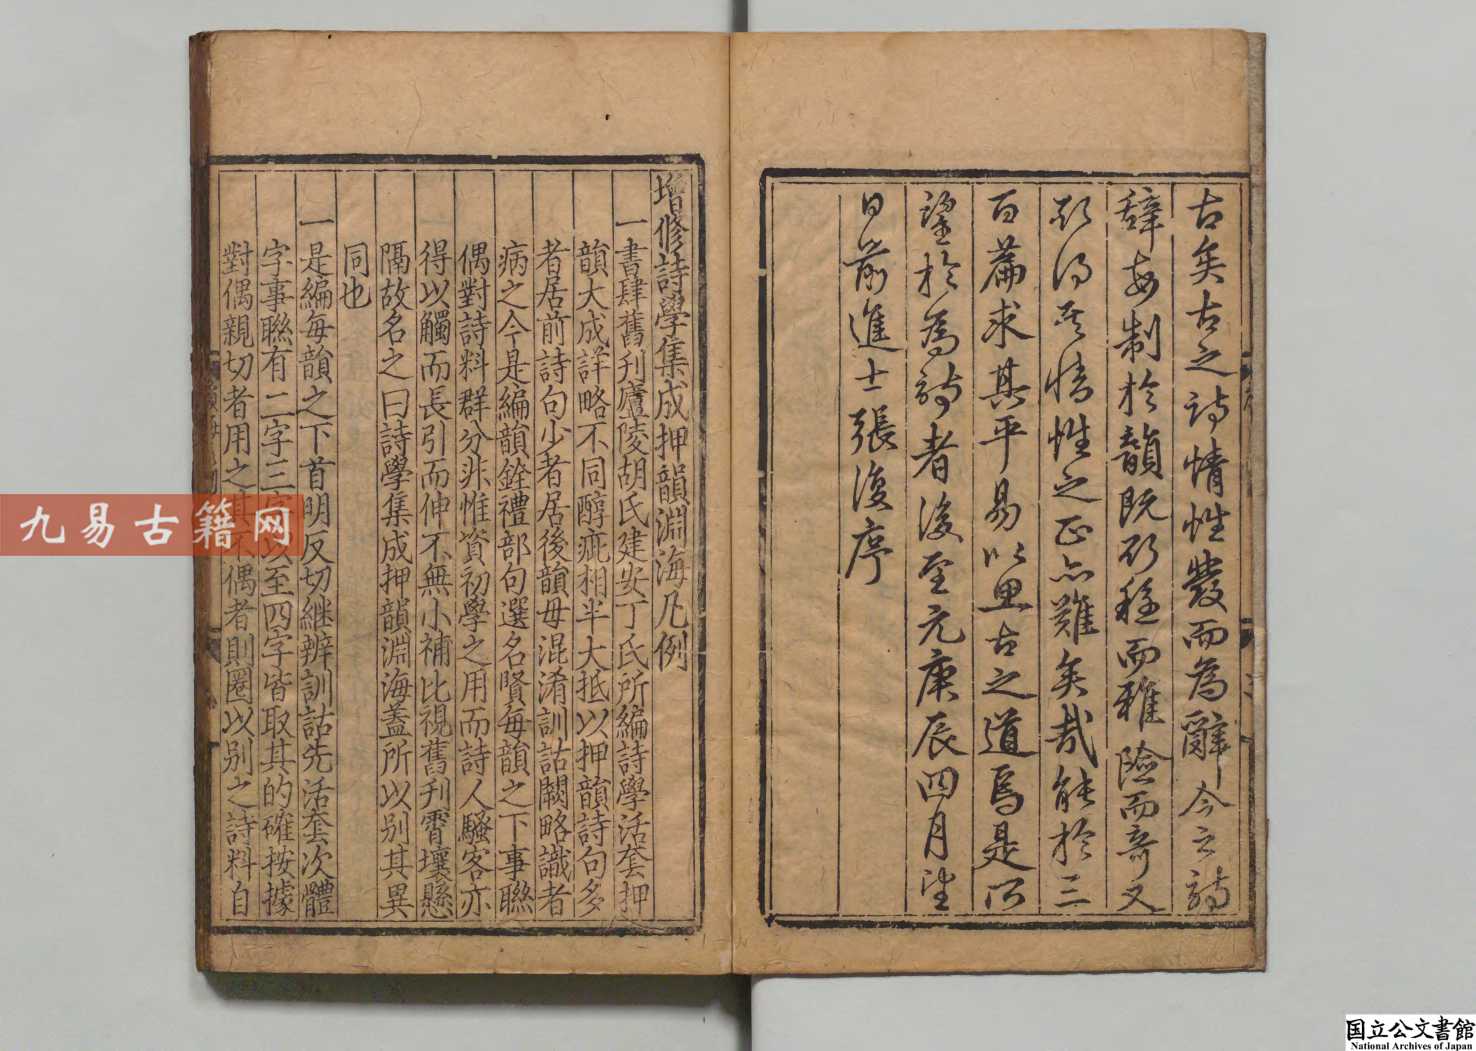 古矣古之詩情性發而為辭今之詩
辭每制於韻既砥稳而雅險而奇又
欲得其情性之正亦難矣哉能於三
百篇求其平易以思古之道焉是所
望於為詩者後至元庚辰四月望
日前進士張復序
增修詩學集成押韻淵海凡例
一書肆舊刊廬陵胡氏建安丁氏所編詩學活套押
韻大成詳略不同醇疵相半大抵以押韻詩句多
者居前詩句少者居後韻毋混淆訓詁闕略識者
病之今是編韻銓禮部句選名賢每韻之下事聯
偶對詩料群分非惟資初學之用而詩人騷客亦
得以觸而長引而伸不無小補比視舊刊霄壤懸
隔故名之曰詩學集成押韻淵海蓋所以別其異
同也
一是編每韻之下首明反切継辨訓詁先活套次體
字事聯有二字三字以至四字皆取其的確按據
對偶親切者用之其不偶者則圈以別之詩料自
九易古籍网
国立公文書館
National Archives of Japan